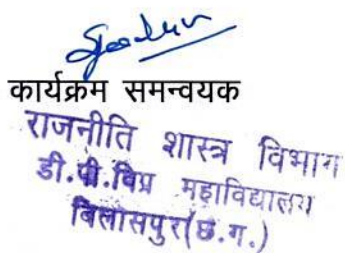 कार्यक्रम समन्वयक
राजनीति शास्त्र विभाग
डी.पी.विप्र महाविद्यालय
बिलासपुर(छ.ग.)